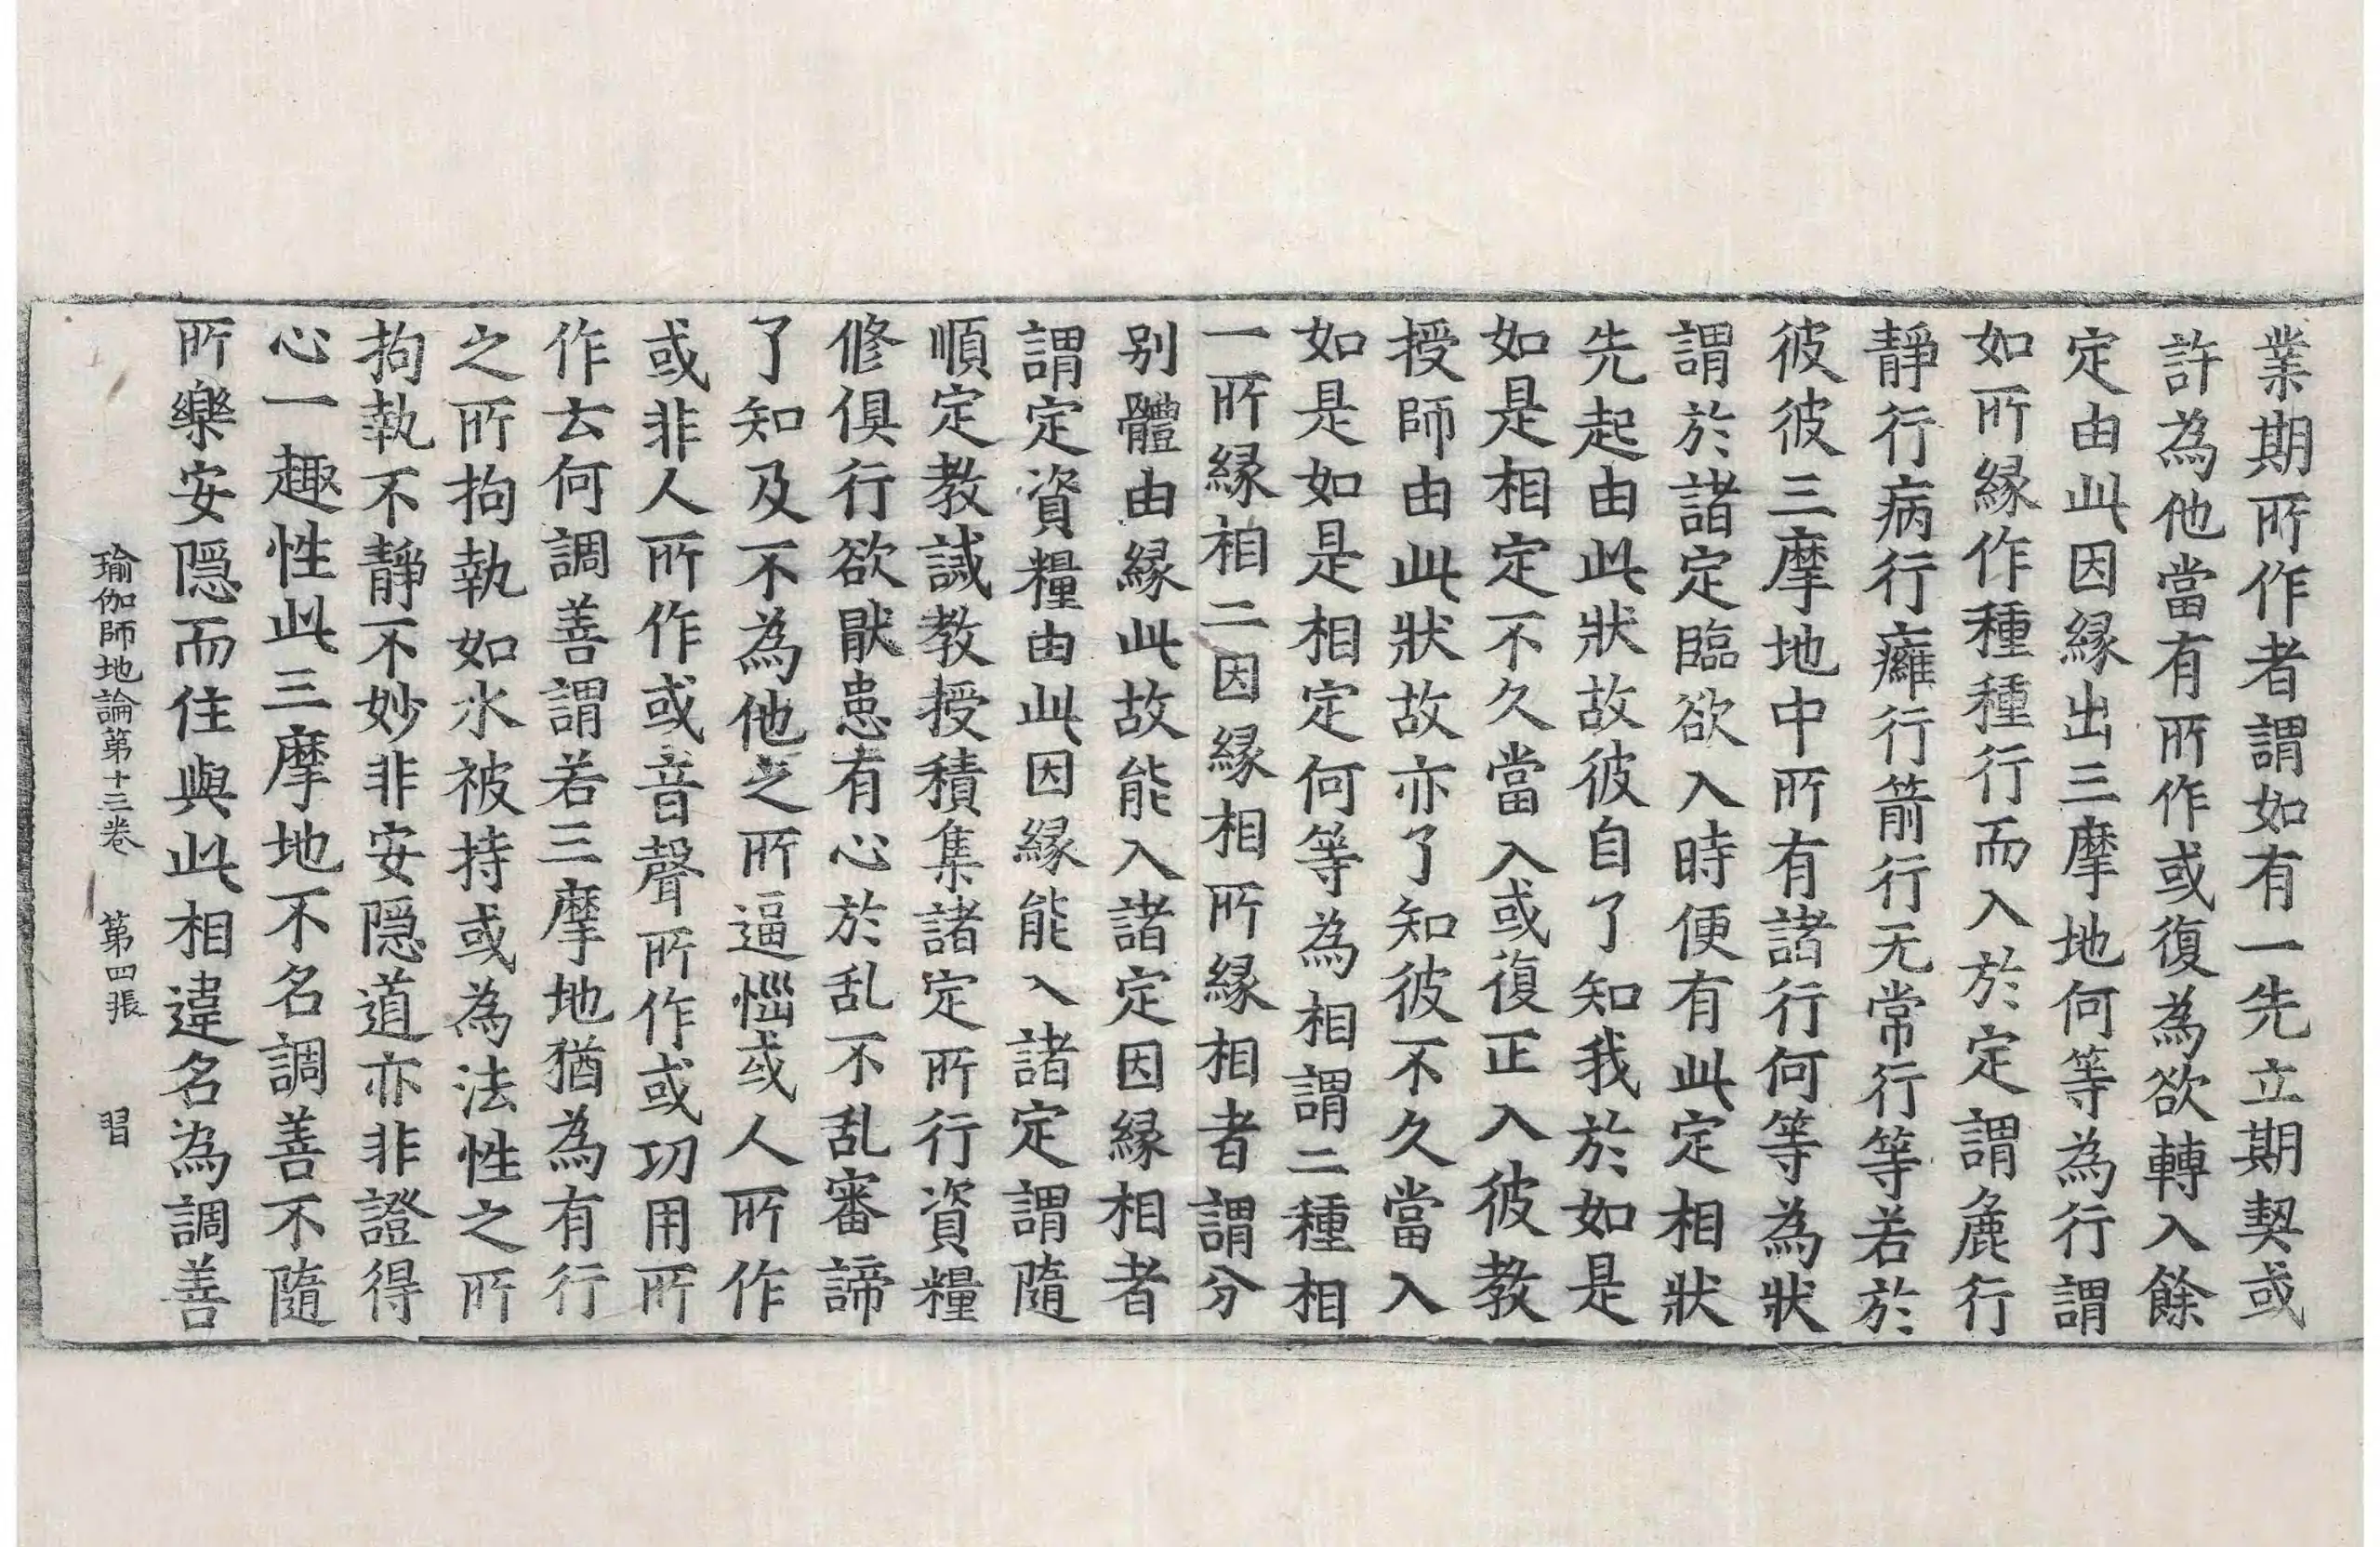 業期所作者謂如有一先立期契或
許為他當有所作或復為欲轉入餘
定由此因緣出三摩地何等為行謂
如所緣作種種行而入於定謂麁行
靜行病行癰行箭行无常行等若於
彼彼三摩地中所有諸行何等為狀
謂於諸定臨欲入時便有此定相狀
先起由此狀故彼自了知我於如是
如是相定不久當入或復正入彼教
授師由此狀故亦了知彼不久當入
如是如是相定何等為相謂二種相
一所緣相二因緣相所緣相者謂分
别體由緣此故能入諸定因緣相者
謂定資糧由此因緣能入諸定謂隨
順定教誡教授積集諸定所行資糧
修俱行欲猒患有心於乱不乱審諦
了知及不為他之所逼惱或人所作
或非人所作或音聲所作或功用所
作云何調善謂若三摩地猶為有行
之所拘執如水被持或為法性之所
拘執不靜不妙非安隱道亦非證得
心一趣性此三摩地不名調善不隨
所樂安隱而住與此相違名為調善
瑜伽師地論第十三卷 第四張 習